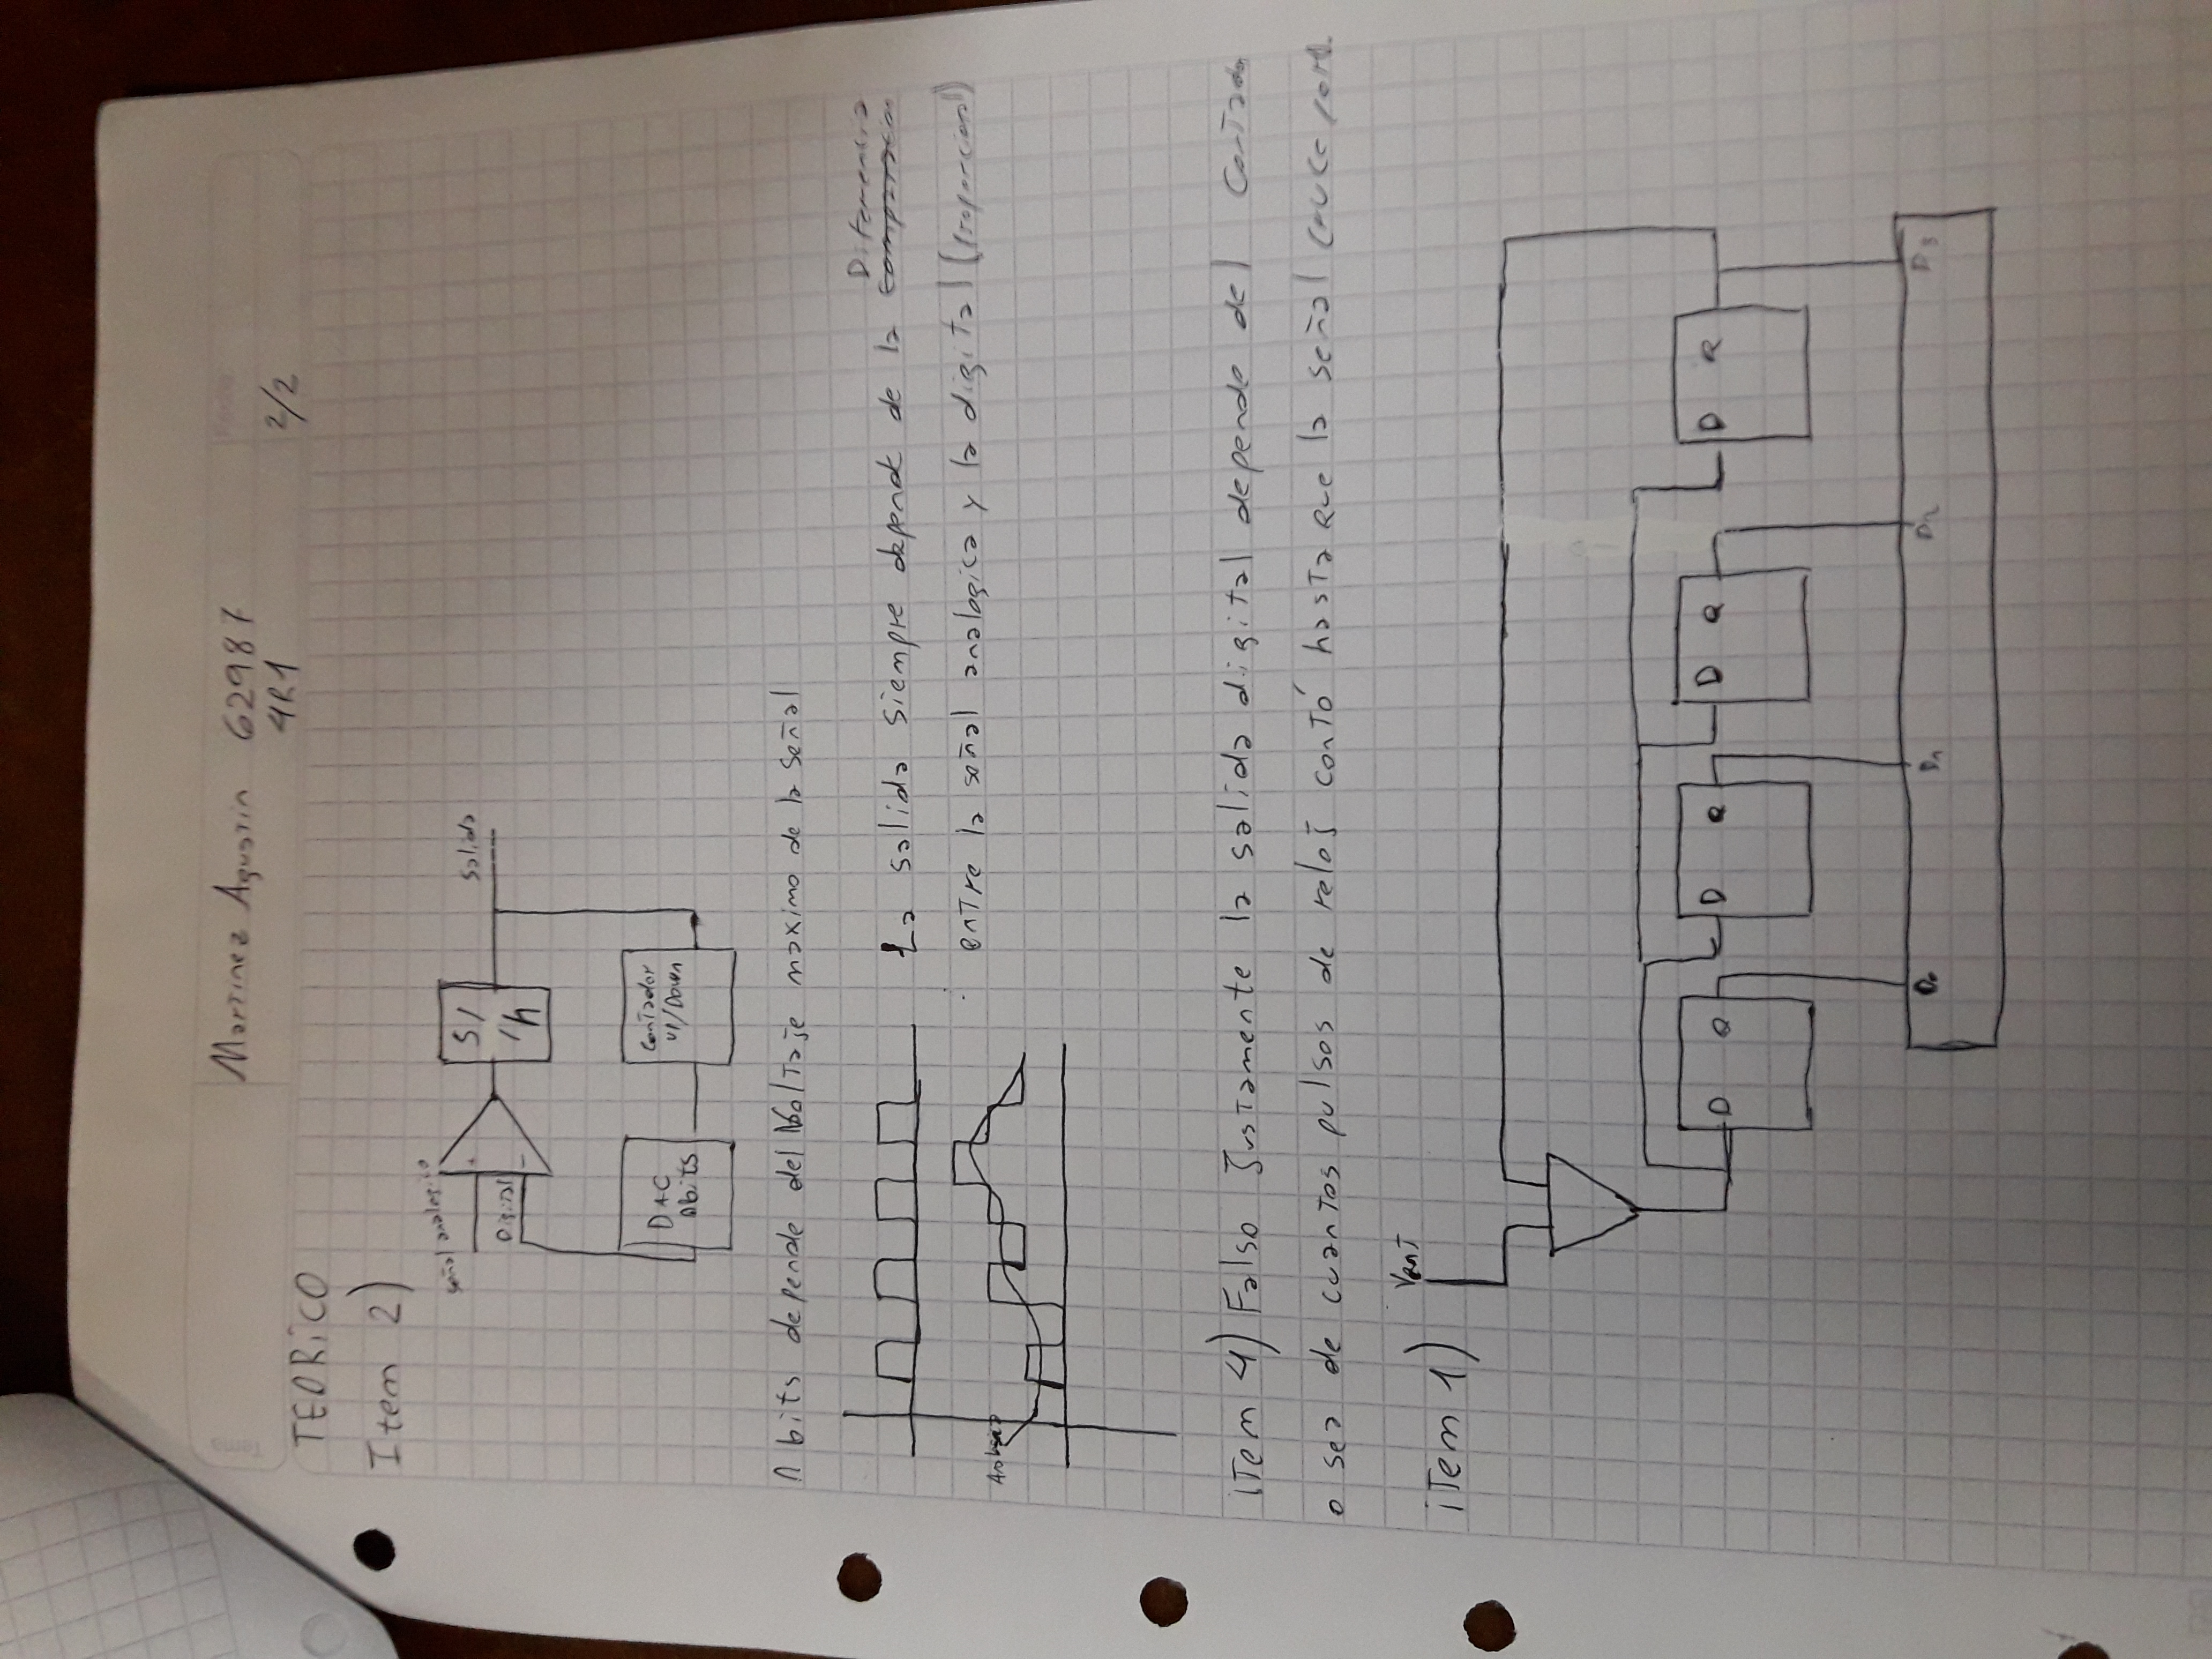 Martinez Agustin 62987
4R1 2/2
TEORICO
Item 2)
señal analogica
+
Digital
-
S/
/h
Salida
DAC
n bits
Contador
UP/Down
n bits depende del Voltaje maximo de la señal
La salida siempre depende de la Diferencia
entre la señal analogica y la digital (proporcional)
item 4) Falso Justamente la salida digital depende del Contador
o sea de cuantos pulsos de reloj contó hasta que la señal cruce
item 1)
Vent
D Q D Q D Q D Q
D0 D1 D2 D3